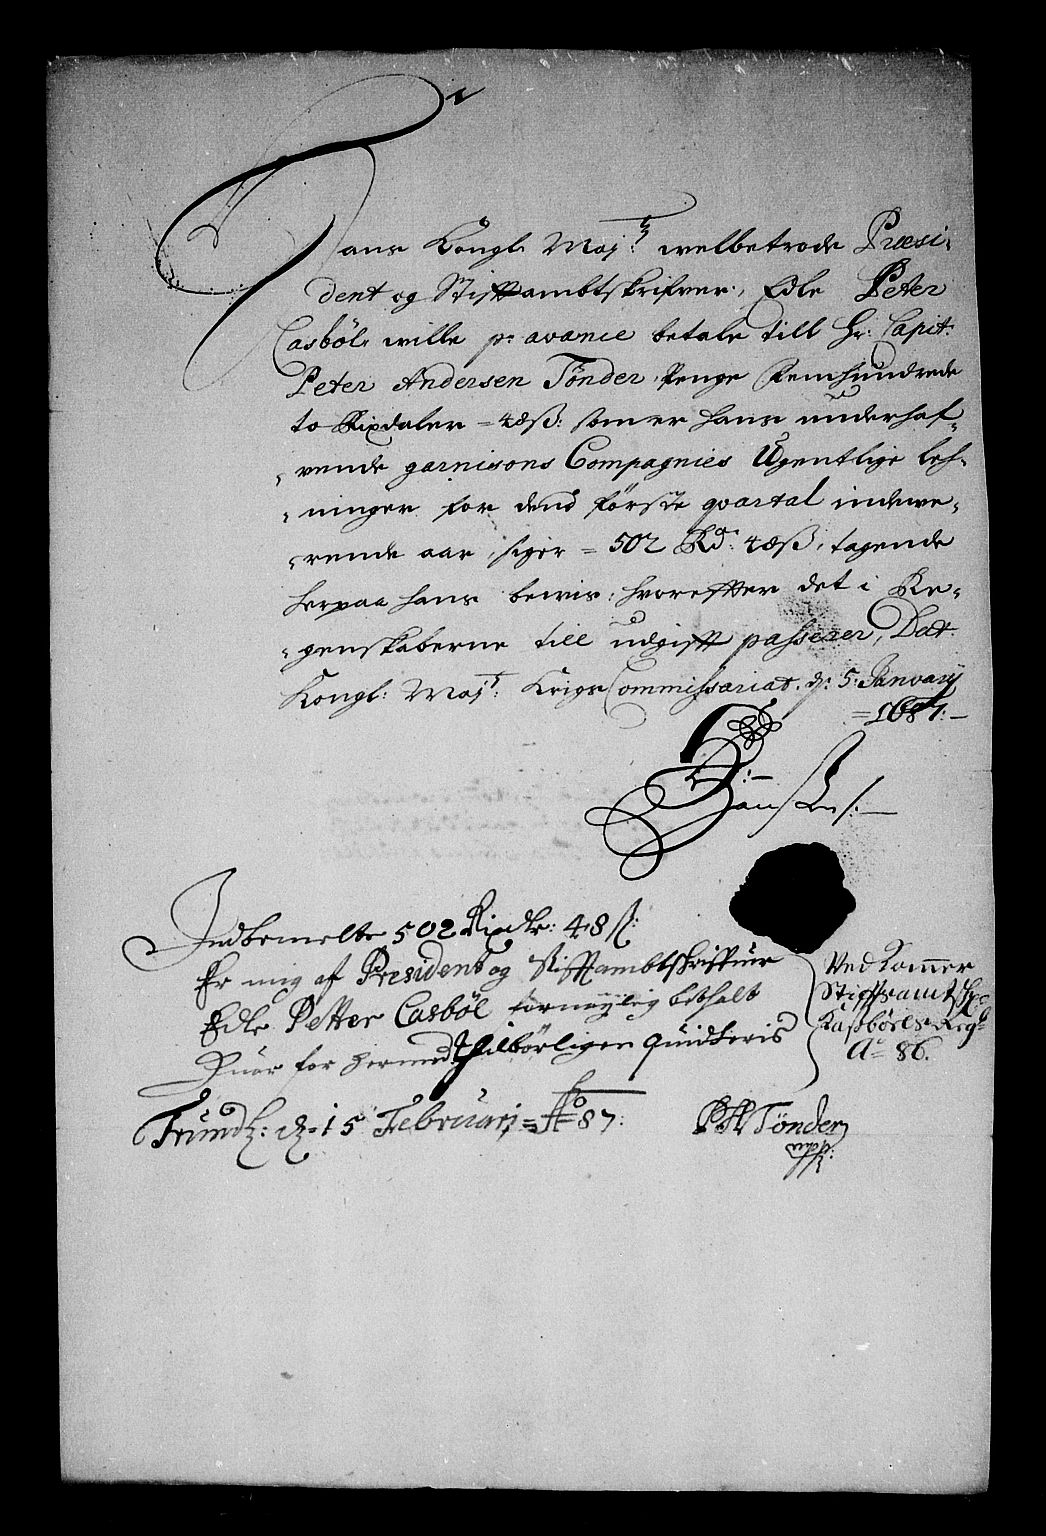 Hans Kongl Maj:tz welbetrode Præsi-
dent og Stifftambtskrifver, Edle Peter
Casböl wille p: avance betale till Hr: Capit:
Peter Andersen Tönder, Penge Femhundrede
to Rixdaler = 48 ß: som er hans underhaf-
vende garnisons Compagnies Ugentlige leh-
ninger for dend förste qvartal indewe-
rende aar, siger = 502 Rd: 48 ß, tagende
herpaa hans bewis, hvoreffter det i Re-
genskaberne till udgifft passerer, Dat:
Kongl: Maj:t: Krigs Commissariat. d: 5: Januarij
= 1687:-
Indbemelte 502 Rixdlr: 48 ß:
Er mig af President og Stifftambtschriffuer
Edle Petter Casböl fornøylig bethalt
Huor for hermed tilbörligen quidteris
Trundh: d: 15 Februarj = Ao 87:
PA Tönder
Ved Kammer
Stifftsamt
Kaßböels Regs
Ao 86.